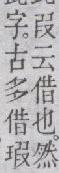 叚云借也。然
字。古多借瑕